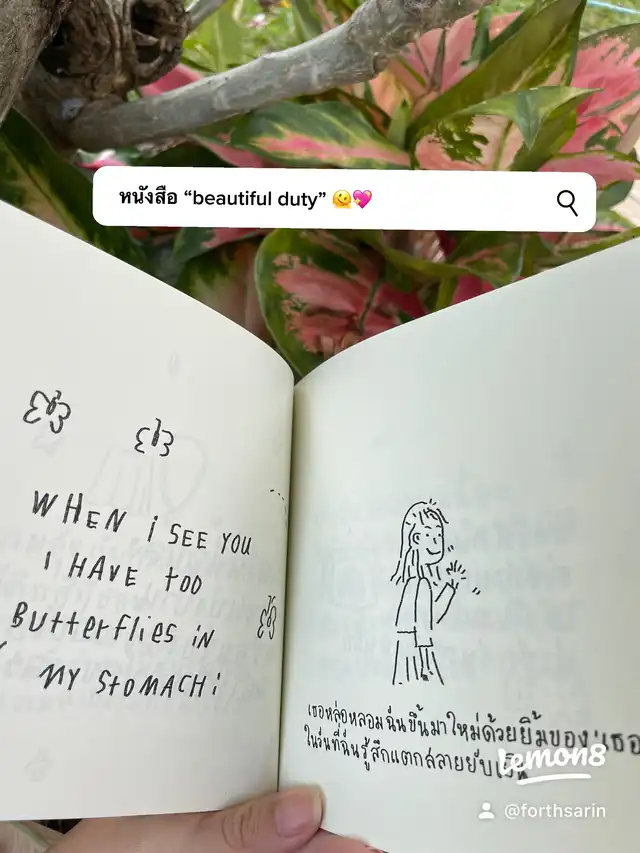 หนังสือ “beautiful duty” 🫠💖
WHEN i SEE YOU
I HAVE too
Butterflies iN
MY StoMACH!
เธอหล่อหลอมฉันขึ้นมาใหม่ด้วยยิ้มของเธอ
ในวันที่ฉันรู้สึกแตกสลายยับเยิน
lemon8
@forthsarin